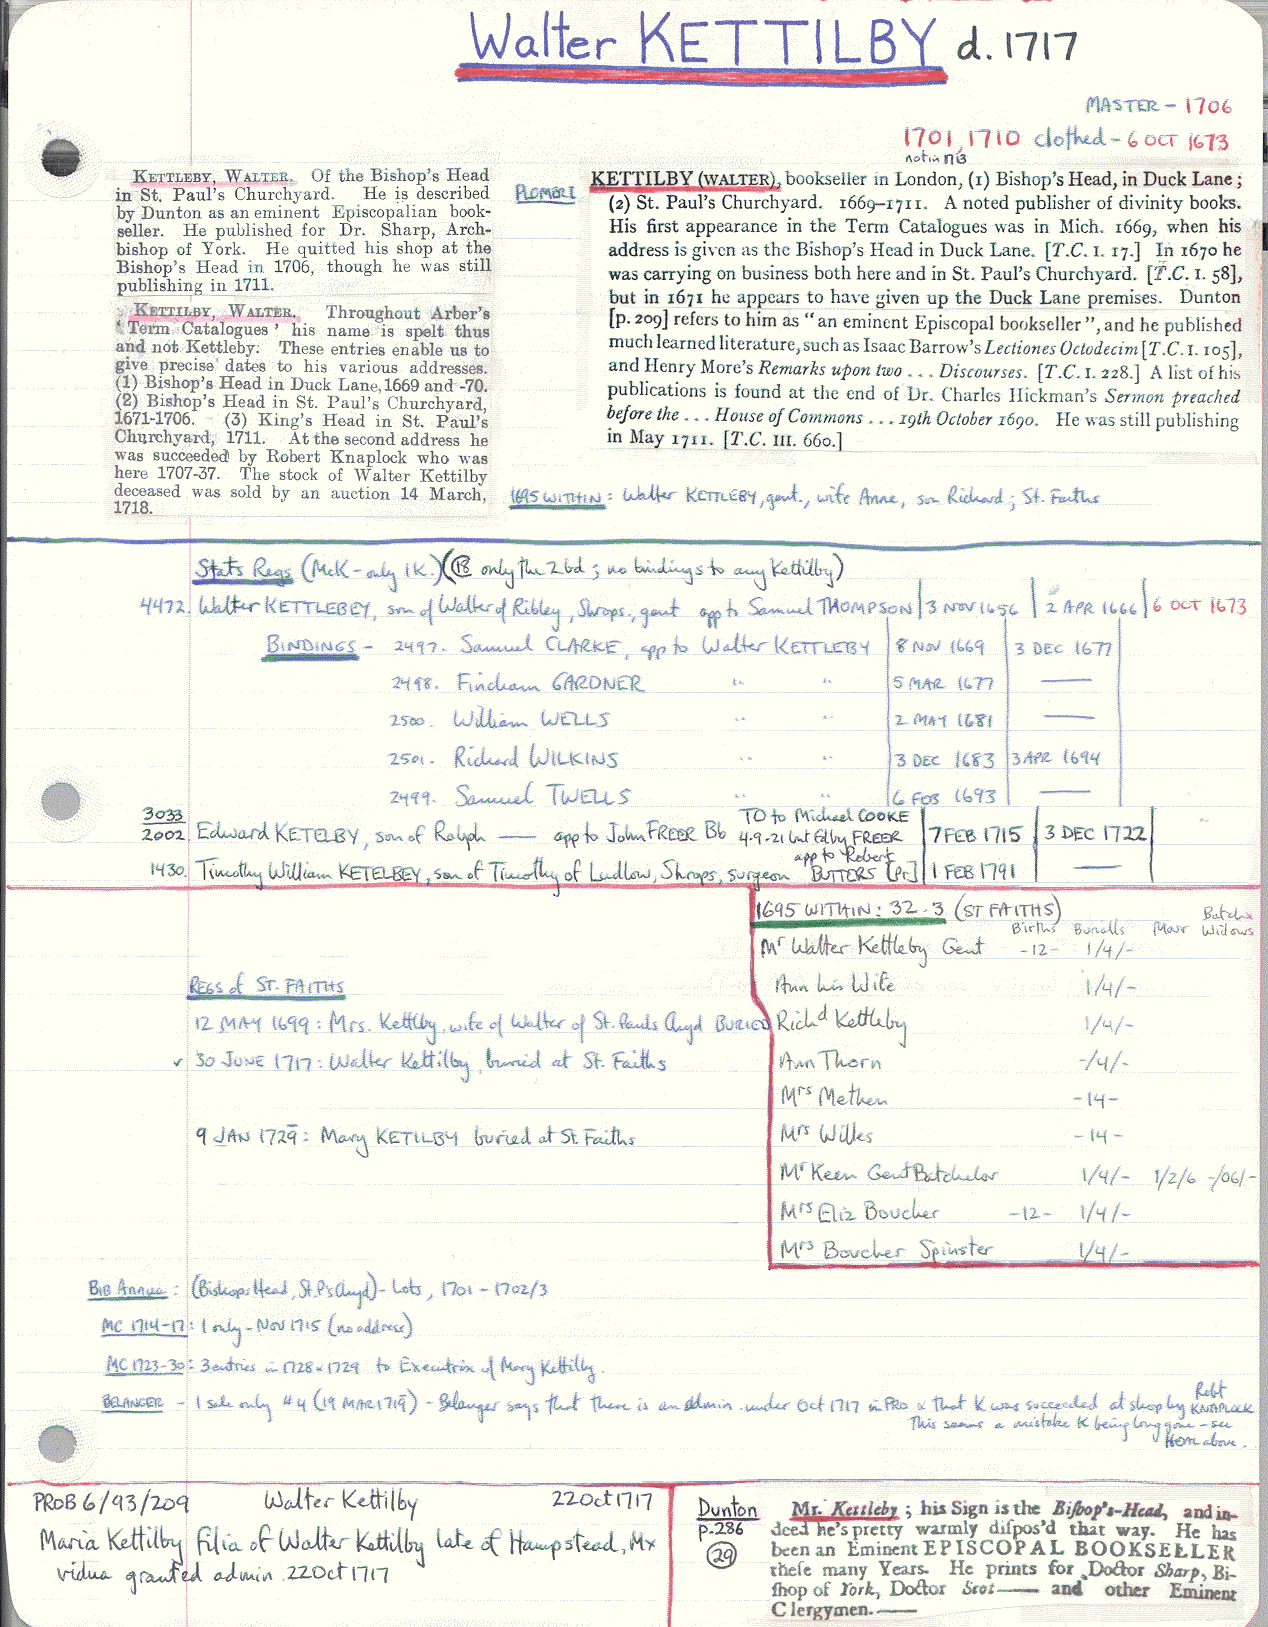 Walter KETTILBY d. 1717
MASTER - 1706
1701, 1710 clothed - 6 OCT 1673
not in 1713
KETTLEBY, WALTER. Of the Bishop's Head
in St. Paul's Churchyard. He is described
by Dunton as an eminent Episcopalian book-
seller. He published for Dr. Sharp, Arch-
bishop of York. He quitted his shop at the
Bishop's Head in 1706, though he was still
publishing in 1711.
KETTILBY, WALTER. Throughout Arber's
'Term Catalogues' his name is spelt thus
and not Kettleby. These entries enable us to
give precise dates to his various addresses.
(1) Bishop's Head in Duck Lane, 1669 and -70.
(2) Bishop's Head in St. Paul's Churchyard,
1671-1706. (3) King's Head in St. Paul's
Churchyard, 1711. At the second address he
was succeeded by Robert Knaplock who was
here 1707-37. The stock of Walter Kettilby
deceased was sold by an auction 14 March,
1718.
PLOMER I
KETTILBY (WALTER), bookseller in London, (1) Bishop's Head, in Duck Lane;
(2) St. Paul's Churchyard. 1669-1711. A noted publisher of divinity books.
His first appearance in the Term Catalogues was in Mich. 1669, when his
address is given as the Bishop's Head in Duck Lane. [T.C. I. 17.] In 1670 he
was carrying on business both here and in St. Paul's Churchyard. [T.C. I. 58],
but in 1671 he appears to have given up the Duck Lane premises. Dunton
[p. 209] refers to him as "an eminent Episcopal bookseller", and he published
much learned literature, such as Isaac Barrow's Lectiones Octodecim [T.C. I. 105],
and Henry More's Remarks upon two . . . Discourses. [T.C. I. 228.] A list of his
publications is found at the end of Dr. Charles Hickman's Sermon preached
before the . . . House of Commons . . . 19th October 1690. He was still publishing
in May 1711. [T.C. III. 660.]
1695 WITHIN: Walter KETTLEBY, gent., wife Anne, son Richard; St. Faiths
Stats Regs (McK - only 1 K.) (18 only the 2 bd; no bindings to any Kettilby)
4472. Walter KETTLEBEY, son of Walter of Ribley, Shrops, gent app to Samuel THOMPSON 3 NOV 1656 2 APR 1666 6 OCT 1673
BINDINGS - 2497. Samuel CLARKE, app to Walter KETTLEBY 8 NOV 1669 3 DEC 1677
2498. Fincham GARDNER " " 5 MAR 1677 —
2500. William WELLS " " 2 MAY 1681 —
2501. Richard WILKINS " " 3 DEC 1683 3 APR 1694
2499. Samuel TWELLS " " 6 FEB 1693 —
3033
2002 Edward KETELBY, son of Ralph — app to John FREER Bb TO to Michael COOKE 4-9-21 but fd by FREER 7 FEB 1715 3 DEC 1722
1430. Timothy William KETELBEY, son of Timothy of Ludlow, Shrops, surgeon app to Robert BUTTERS [Pr] 1 FEB 1791 —
1695 WITHIN: 32.3 (ST FAITHS)
Births Burialls Marr Batch & Widows
Mr Walter Kettleby Gent -12- 1/4/-
Ann his Wife 1/4/-
Richd Kettleby 1/4/-
Ann Thorn -/4/-
Mrs Methen -14-
Mrs Willes -14-
Mr Keen Gent Batchelor 1/4/- 1/2/6 -/06/-
Mrs Eliz Boucher -12- 1/4/-
Mrs Boucher Spinster 1/4/-
REGS of ST. FAITHS
12 MAY 1699: Mrs. Kettlby, wife of Walter of St. Pauls Chyd BURIED
✓ 30 JUNE 1717: Walter Kettilby, buried at St. Faiths
9 JAN 1729: Mary KETILBY buried at St Faiths
BIB ANNUA: (Bishops Head, St. P's Chyd) - Lots, 1701 - 1702/3
MC 1714-17: 1 only - Nov 1715 (no address)
MC 1723-30: 3 entries in 1728 & 1729 to Executrix of Mary Kettilby.
BELANGER - 1 sale only #4 (19 MAR 1718) - Belanger says that there is an admin. under Oct 1717 in PRO & that K was succeeded at shop by Robt KNAPLOCK
This seems a mistake K being long gone - see
above.
PROB 6/93/209 Walter Kettilby 22 Oct 1717
Maria Kettilby filia of Walter Kettilby late of Hampstead, Mx
vidua granted admin 22 Oct 1717
Dunton
p. 286
29
Mr. Kettleby; his Sign is the Bishop's-Head, and in-
deed he's pretty warmly dispos'd that way. He has
been an Eminent EPISCOPAL BOOKSELLER
these many Years. He prints for Doctor Sharp, Bi-
shop of York, Doctor Scot— and other Eminent
Clergymen.—